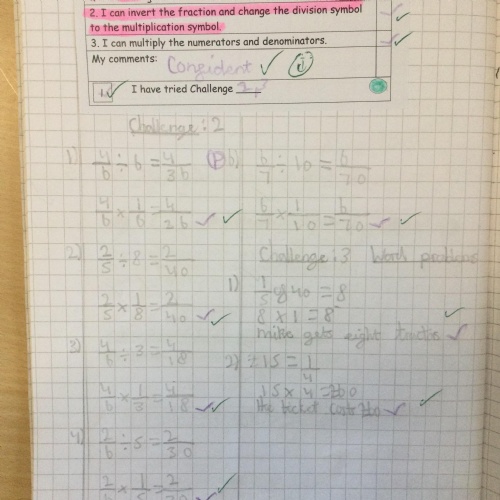 2. I can invert the fraction and change the division symbol
to the multiplication symbol.
3. I can multiply the numerators and denominators.
My comments: Congident
I have tried Challenge 2
Challenge: 2
1) 4/6 ÷ 6 = 4/36
4/6 × 1/6 = 4/36
2) 2/5 ÷ 8 = 2/40
2/5 × 1/8 = 2/40
3) 4/6 ÷ 3 = 4/18
4/6 × 1/3 = 4/18
4) 2/6 ÷ 5 = 2/30
2/6 × 1/5 = 2/30
6/7 ÷ 10 = 6/70
6/7 × 1/10 = 6/70
Challenge: 3 Word problems
1) 1/5 of 40 = 8
8 × 1 = 8
mike gets eight
2) ÷ 15 = 1/4
15 × 4 = 60
the ticket costs £60